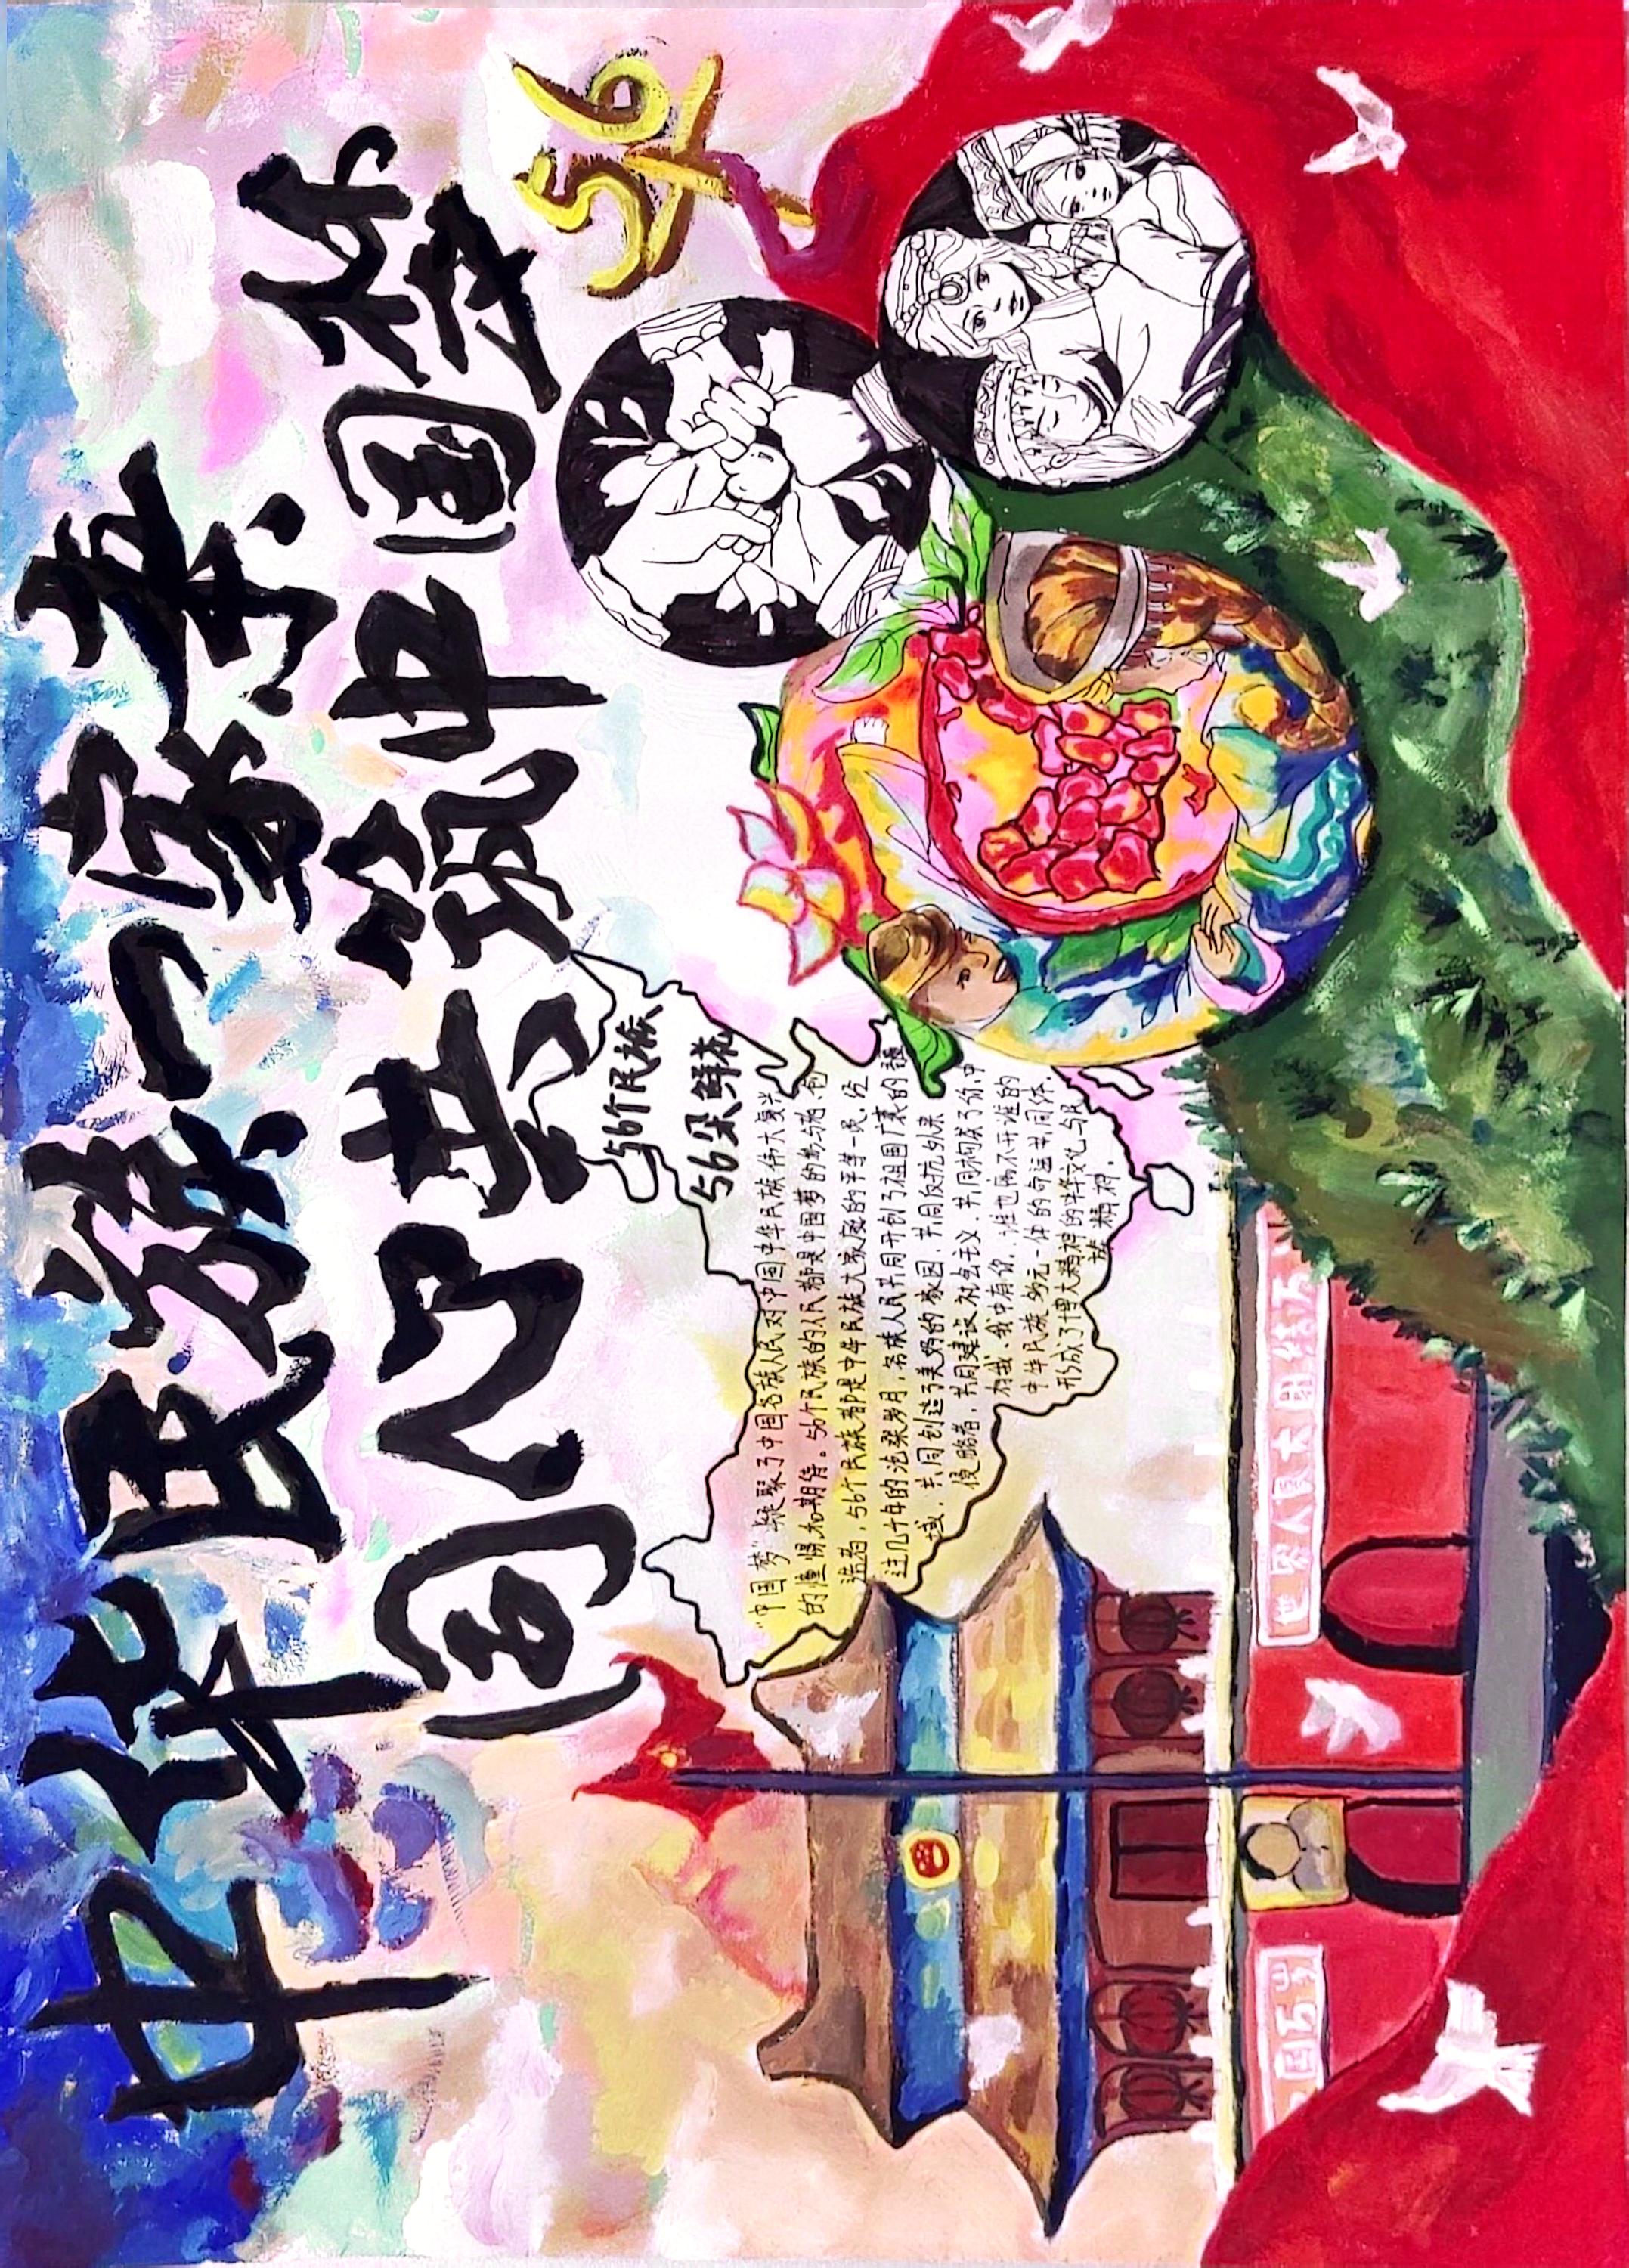 中华民族一家亲.
同心共筑中国梦
56个
56个民族
56朵鲜花
"中国梦"凝聚了中国各族人民对中国中华民族伟大复兴
的憧憬和期待。56个民族的人民都是中国梦的参与者、创
造者,56个民族都是中华民族大家庭的平等一员,在
过几千年的沧桑岁月,各族人民共同开创了祖国广袤的疆
域,共同创造了美好的家园,共同反抗外来
侵略者,共同建设社会主义,共同构成了你中
有我、我中有你,谁也离不开谁的
中华民族多元一体的命运共同体.
形成了博大精神的中华文化与民
族精神.
国万岁
世界人民大团结万